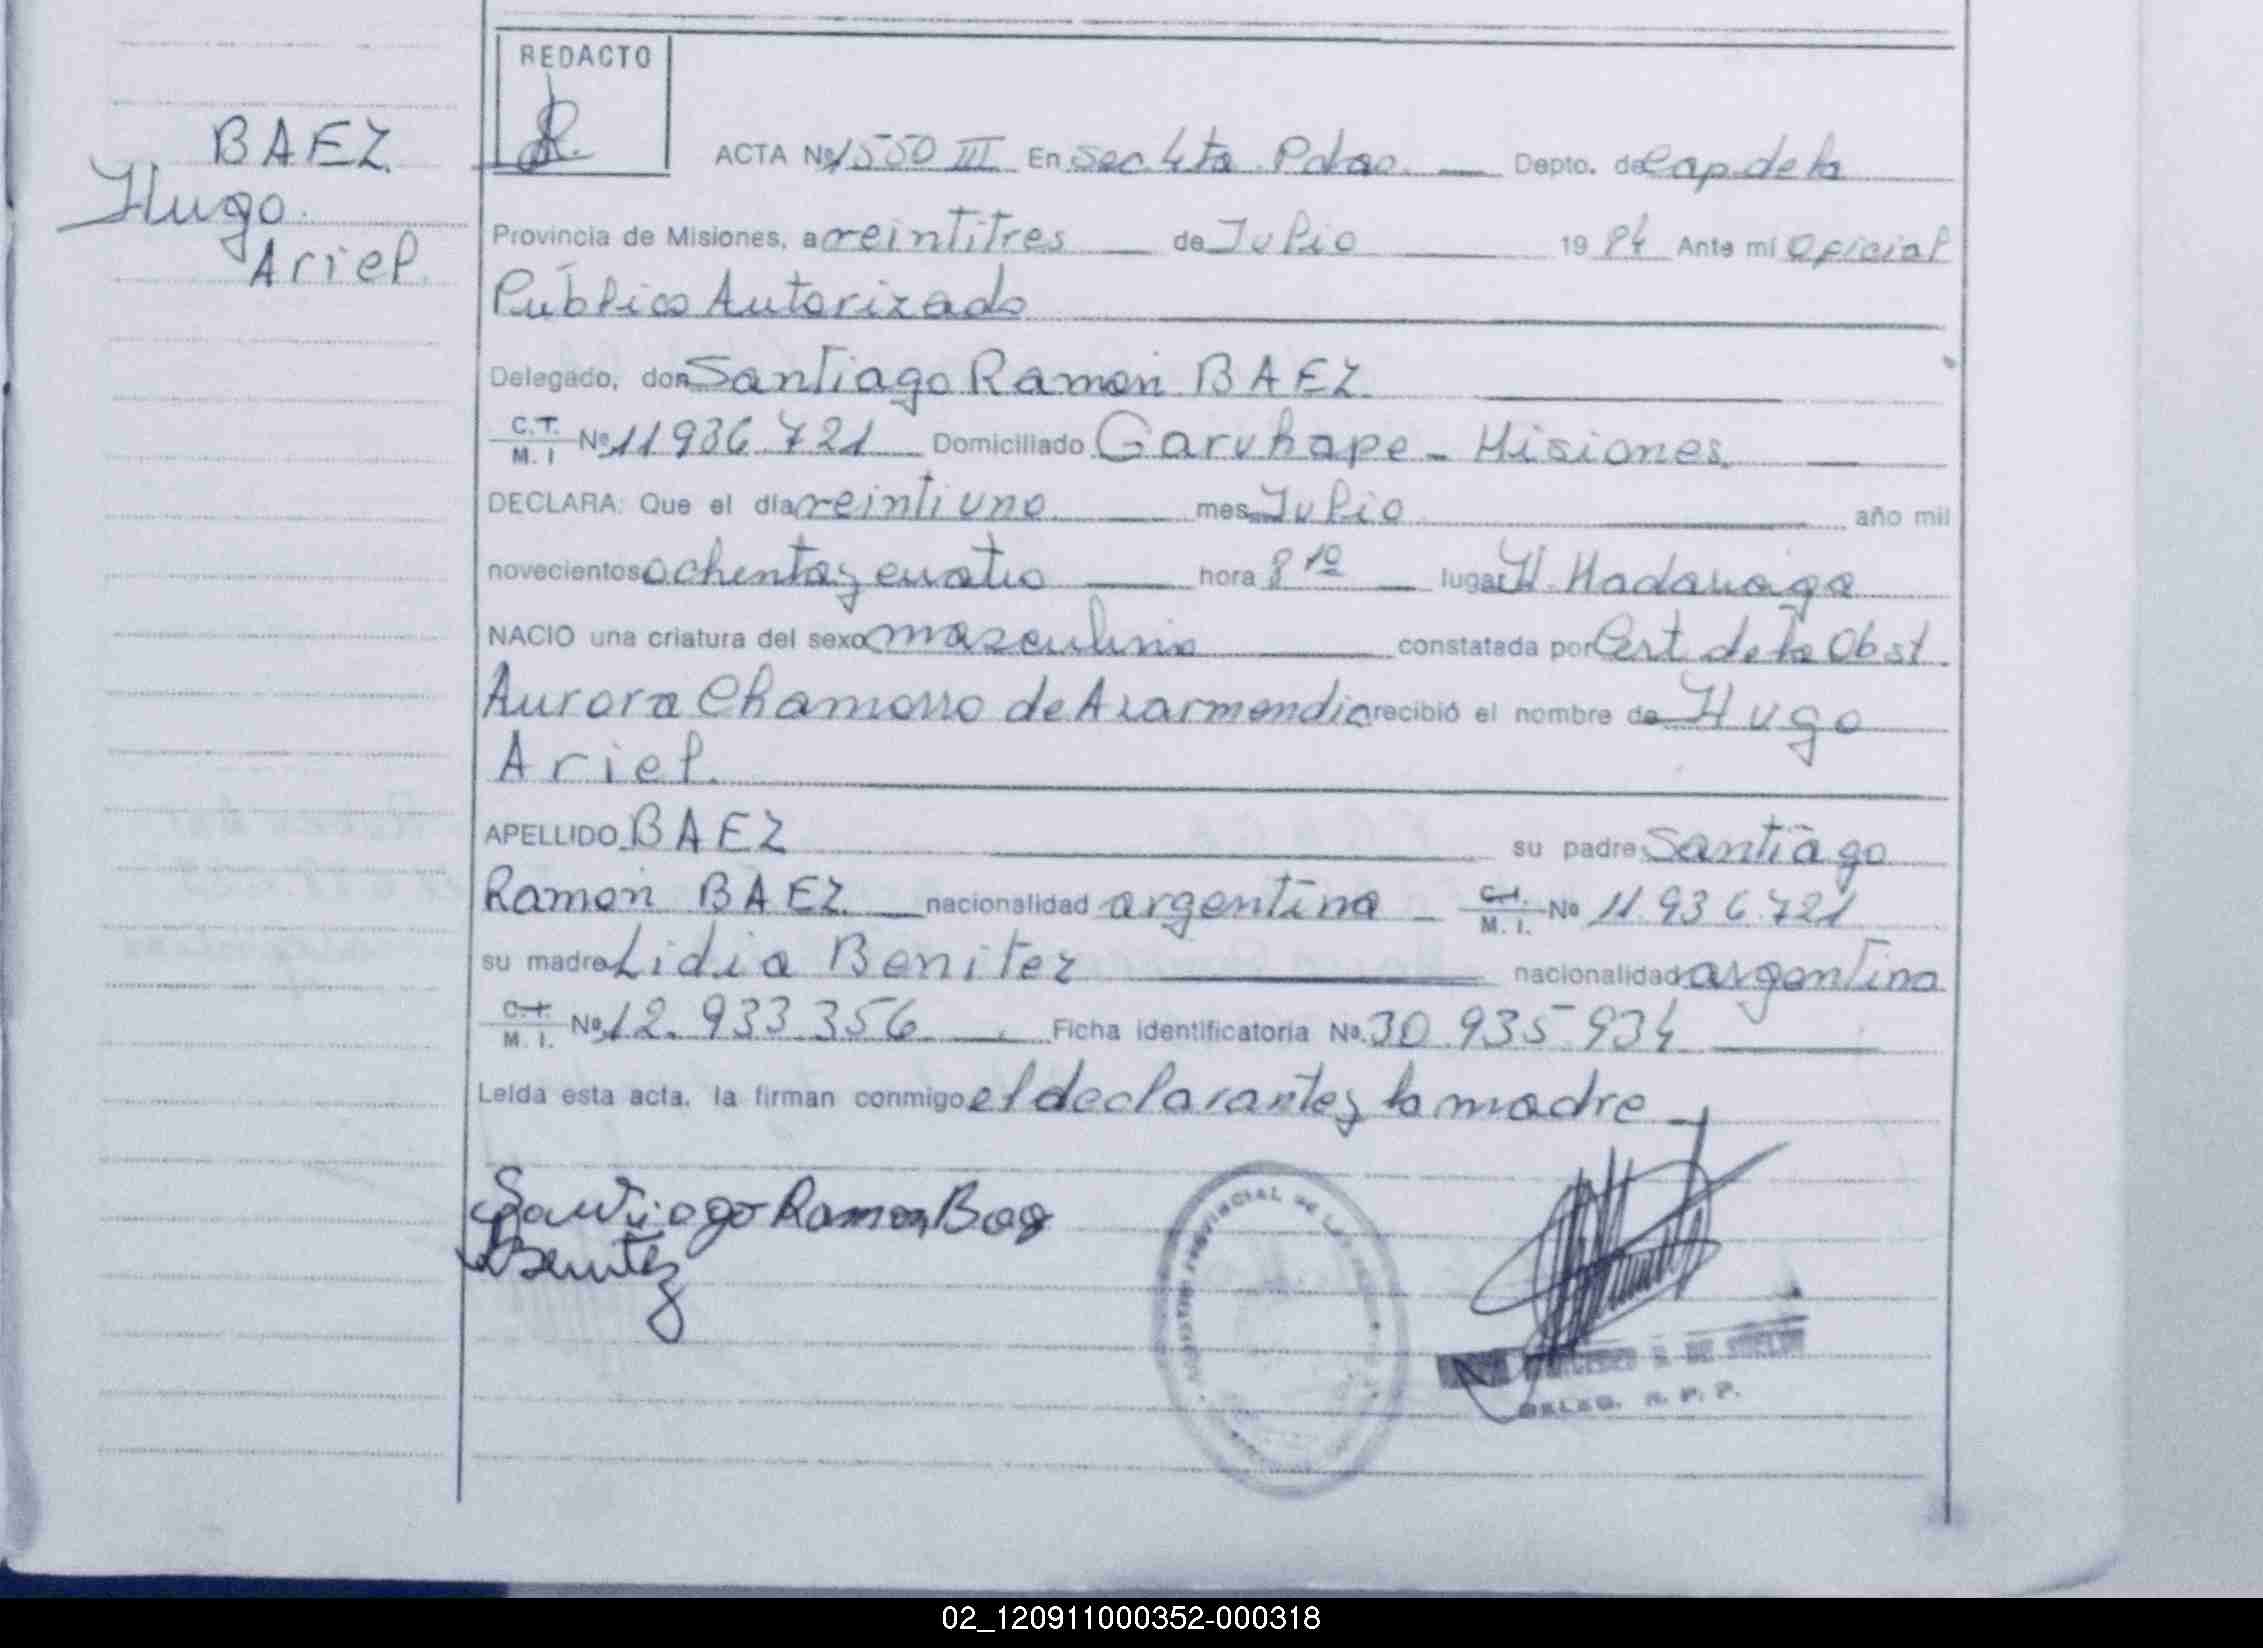 REDACTO
BAEZ
Hugo
Ariel
ACTA Nº 1550 III En Sec 4ta Pdas. Depto. de Cap. de la
Provincia de Misiones, a veintitres de Julio 1984 Ante mi Oficial
Público Autorizado
Delegado, don Santiago Ramon BAEZ
C.T. M.I Nº 11936.721 Domiciliado Garuhape - Misiones
DECLARA: Que el día veintiuno mes Julio año mil
novecientos ochenta y cuatro hora 8 10 lugar H. Madariaga
NACIO una criatura del sexo masculino constatada por Cert de la Obst.
Aurora Chamorro de Azarmendia recibió el nombre de Hugo
Ariel.
APELLIDO BAEZ su padre Santiago
Ramon BAEZ nacionalidad argentina - C.I. M.I. Nº 11.936.721
su madre Lidia Benitez nacionalidad argentina
C.I. M.I. Nº 12.933.356 Ficha identificatoria Nº 30.935.934
Leída esta acta, la firman conmigo el declarante y la madre
Santiago Ramon Baez
Benitez
PROVINCIAL DE LAS
DELEG. R. P. P.
02_120911000352-000318